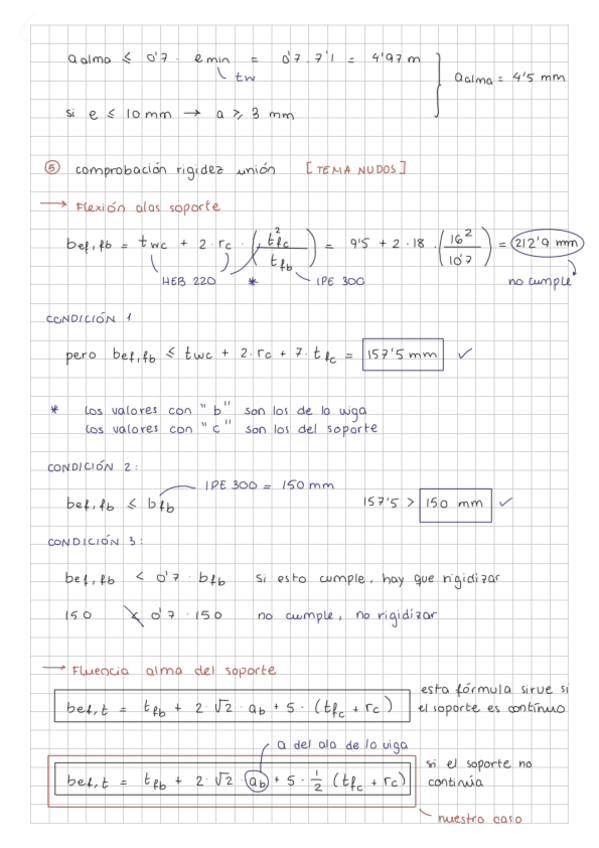 a alma ≤ 0'7 · e min = 0'7 · 7'1 = 4'97 m
tw
a alma = 4'5 mm
si e ≤ 10 mm → a ≥ 3 mm
⑤ comprobación rigidez unión [TEMA NUDOS]
→ Flexión alas soporte
bef,fb = twc + 2·rc · (t²fc / tfb) = 9'5 + 2·18 · (16² / 10'7) = 212'9 mm
HEB 220 * IPE 300 no cumple
CONDICIÓN 1
pero bef,fb ≤ twc + 2·rc + 7·tfc = 157'5 mm ✓
* Los valores con "b" son los de la viga
Los valores con "c" son los del soporte
CONDICIÓN 2:
IPE 300 = 150 mm
bef,fb ≤ bfb 157'5 > 150 mm ✓
CONDICIÓN 3:
bef,fb < 0'7 · bfb si esto cumple, hay que rigidizar
150 < 0'7 · 150 no cumple, no rigidizar
→ Fluencia alma del soporte
bef,t = tfb + 2·√2·ab + 5·(tfc + rc) esta fórmula sirve si
el soporte es contínuo
a del ala de la viga
bef,t = tfb + 2·√2·ab + 5·½ (tfc + rc) si el soporte no
continúa
nuestro caso